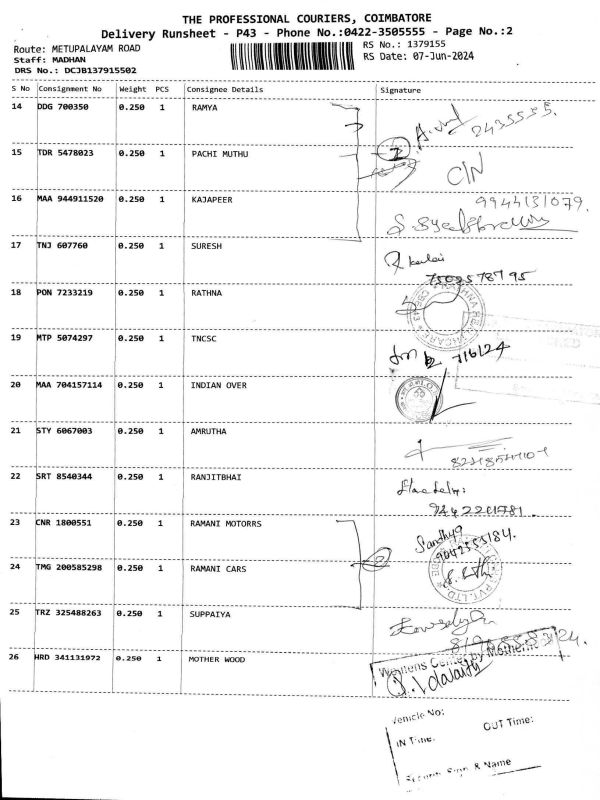 THE PROFESSIONAL COURIERS, COIMBATORE
Delivery Runsheet - P43 - Phone No.:0422-3505555 - Page No.:2
Route: METUPALAYAM ROAD
Staff: MADHAN
DRS No.: DCJB137915502
RS No.: 1379155
RS Date: 07-Jun-2024
S No Consignment No Weight PCS Consignee Details Signature
14 DDG 700350 0.250 1 RAMYA
2435535.
15 TDR 5478023 0.250 1 PACHI MUTHU
16 MAA 944911520 0.250 1 KAJAPEER
9944131079.
17 TNJ 607760 0.250 1 SURESH
18 PON 7233219 0.250 1 RATHNA
19 MTP 5074297 0.250 1 TNCSC
7/6/24
20 MAA 704157114 0.250 1 INDIAN OVER
21 STY 6067003 0.250 1 AMRUTHA
22 SRT 8540344 0.250 1 RANJITBHAI
23 CNR 1800551 0.250 1 RAMANI MOTORRS
Sandhya
9042555184.
24 TMG 200585298 0.250 1 RAMANI CARS
PVT. LTD.
25 TRZ 325488263 0.250 1 SUPPAIYA
26 HRD 341131972 0.250 1 MOTHER WOOD
Womens Center by Motherhood
Vehicle No:
IN Time: OUT Time:
Sign & Name